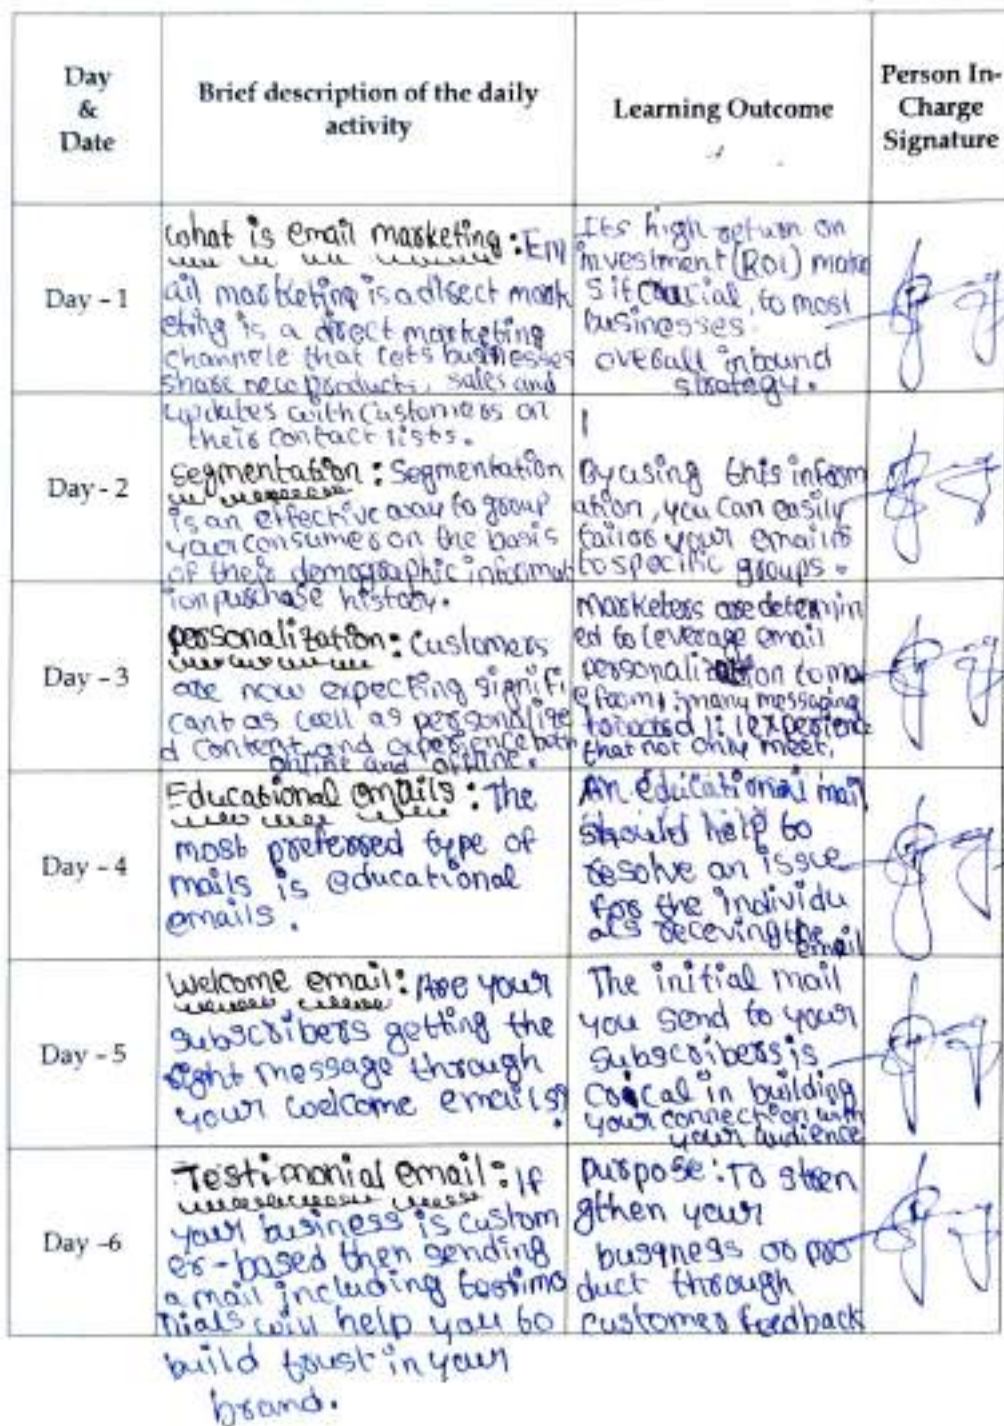 Day
&
Date
Brief description of the daily
activity
Learning Outcome
Person In-
Charge
Signature
Day - 1
What is email marketing : Em
ail marketing is a direct mark
eting is a direct marketing
channele that lets businesses
share new products, sales and
updates with customers on
their contact lists.
Its high return on
investment (ROI) make
s it crucial, to most
businesses.
overall inbound
strategy.
Day - 2
segmentation : Segmentation
is an effective way to group
your consumers on the basis
of their demographic informat
ion purchase history.
By using this inform
ation, you can easily
tailor your emails
to specific groups.
Day - 3
personalization : Customers
are now expecting signifi
cant as well as personalize
d content and experience both
online and offline.
Marketers are determin
ed to leverage email
personalization to mo
many messaging
that not only meet,
Day - 4
Educational emails : The
most preferred type of
mails is educational
emails.
An educational mail
should help to
resolve an issue
for the individu
als receving the
email
Day - 5
Welcome email : Are your
subscribers getting the
right message through
your welcome emails?
The initial mail
you send to your
subscribers is
in building
your connection with
your audience
Day -6
Testimonial email : If
your business is custom
er-based then sending
a mail including testimo
nials will help you to
build trust in your
brand.
purpose : To stren
gthen your
business or pro
duct through
customer feedback